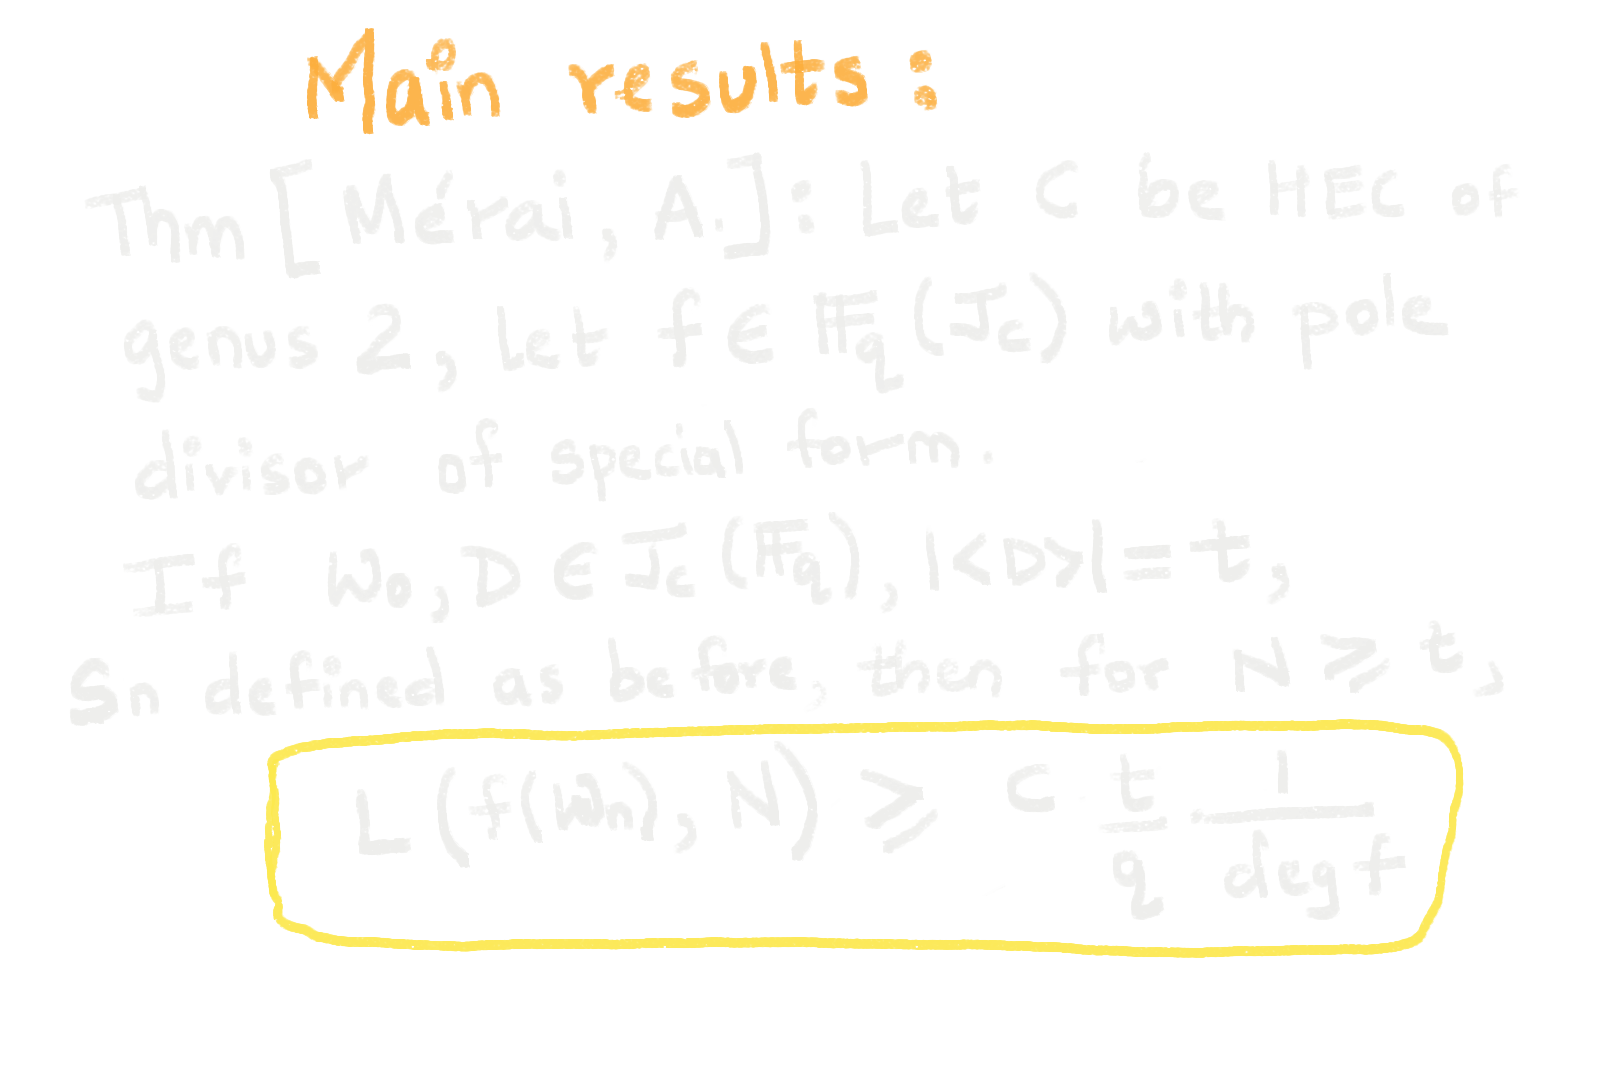 Main results:
Thm [Mérai, A.]: Let C be HEC of
genus 2, let f ∈ 𝔽q(Jc) with pole
divisor of special form.
If W₀, D ∈ Jc(𝔽q), |<D>| = t,
Sn defined as before, then for N ≥ t,
L(f(Wn), N) ≥ c t/q 1/deg f